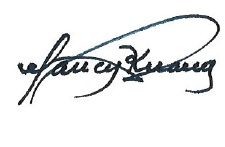 Nancy Kuang